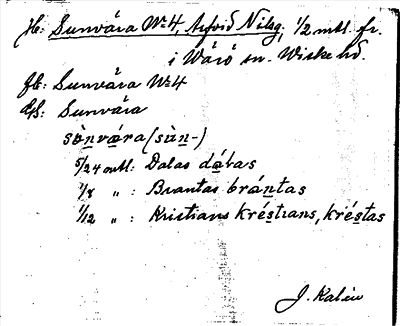 Jb: Sunvära No 4, Arfvid Nilsg, 1/2 mtl. fr.
i Wärö sn. Wiske hd.
Jb: Sunvära No 4
GS: Sunvära
sònvǽra (sùn-)
5/24 mtl: Dalas dálas
1/8 " : Brantas brántas
1/12 " : Kristians kréstians, kréstas
J. Kalén